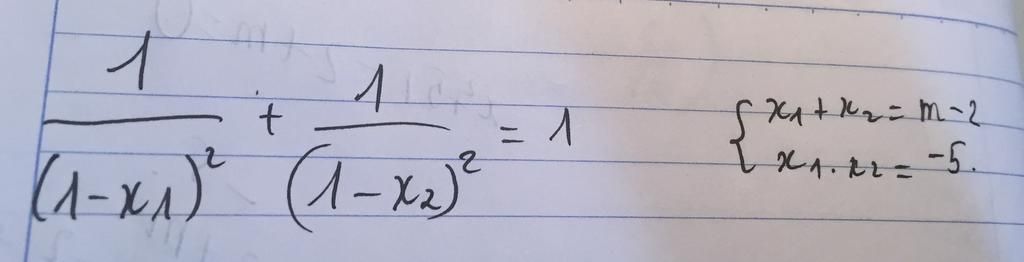 1/(1-x₁)² + 1/(1-x₂)² = 1
{ x₁ + x₂ = m - 2
x₁ . x₂ = -5.